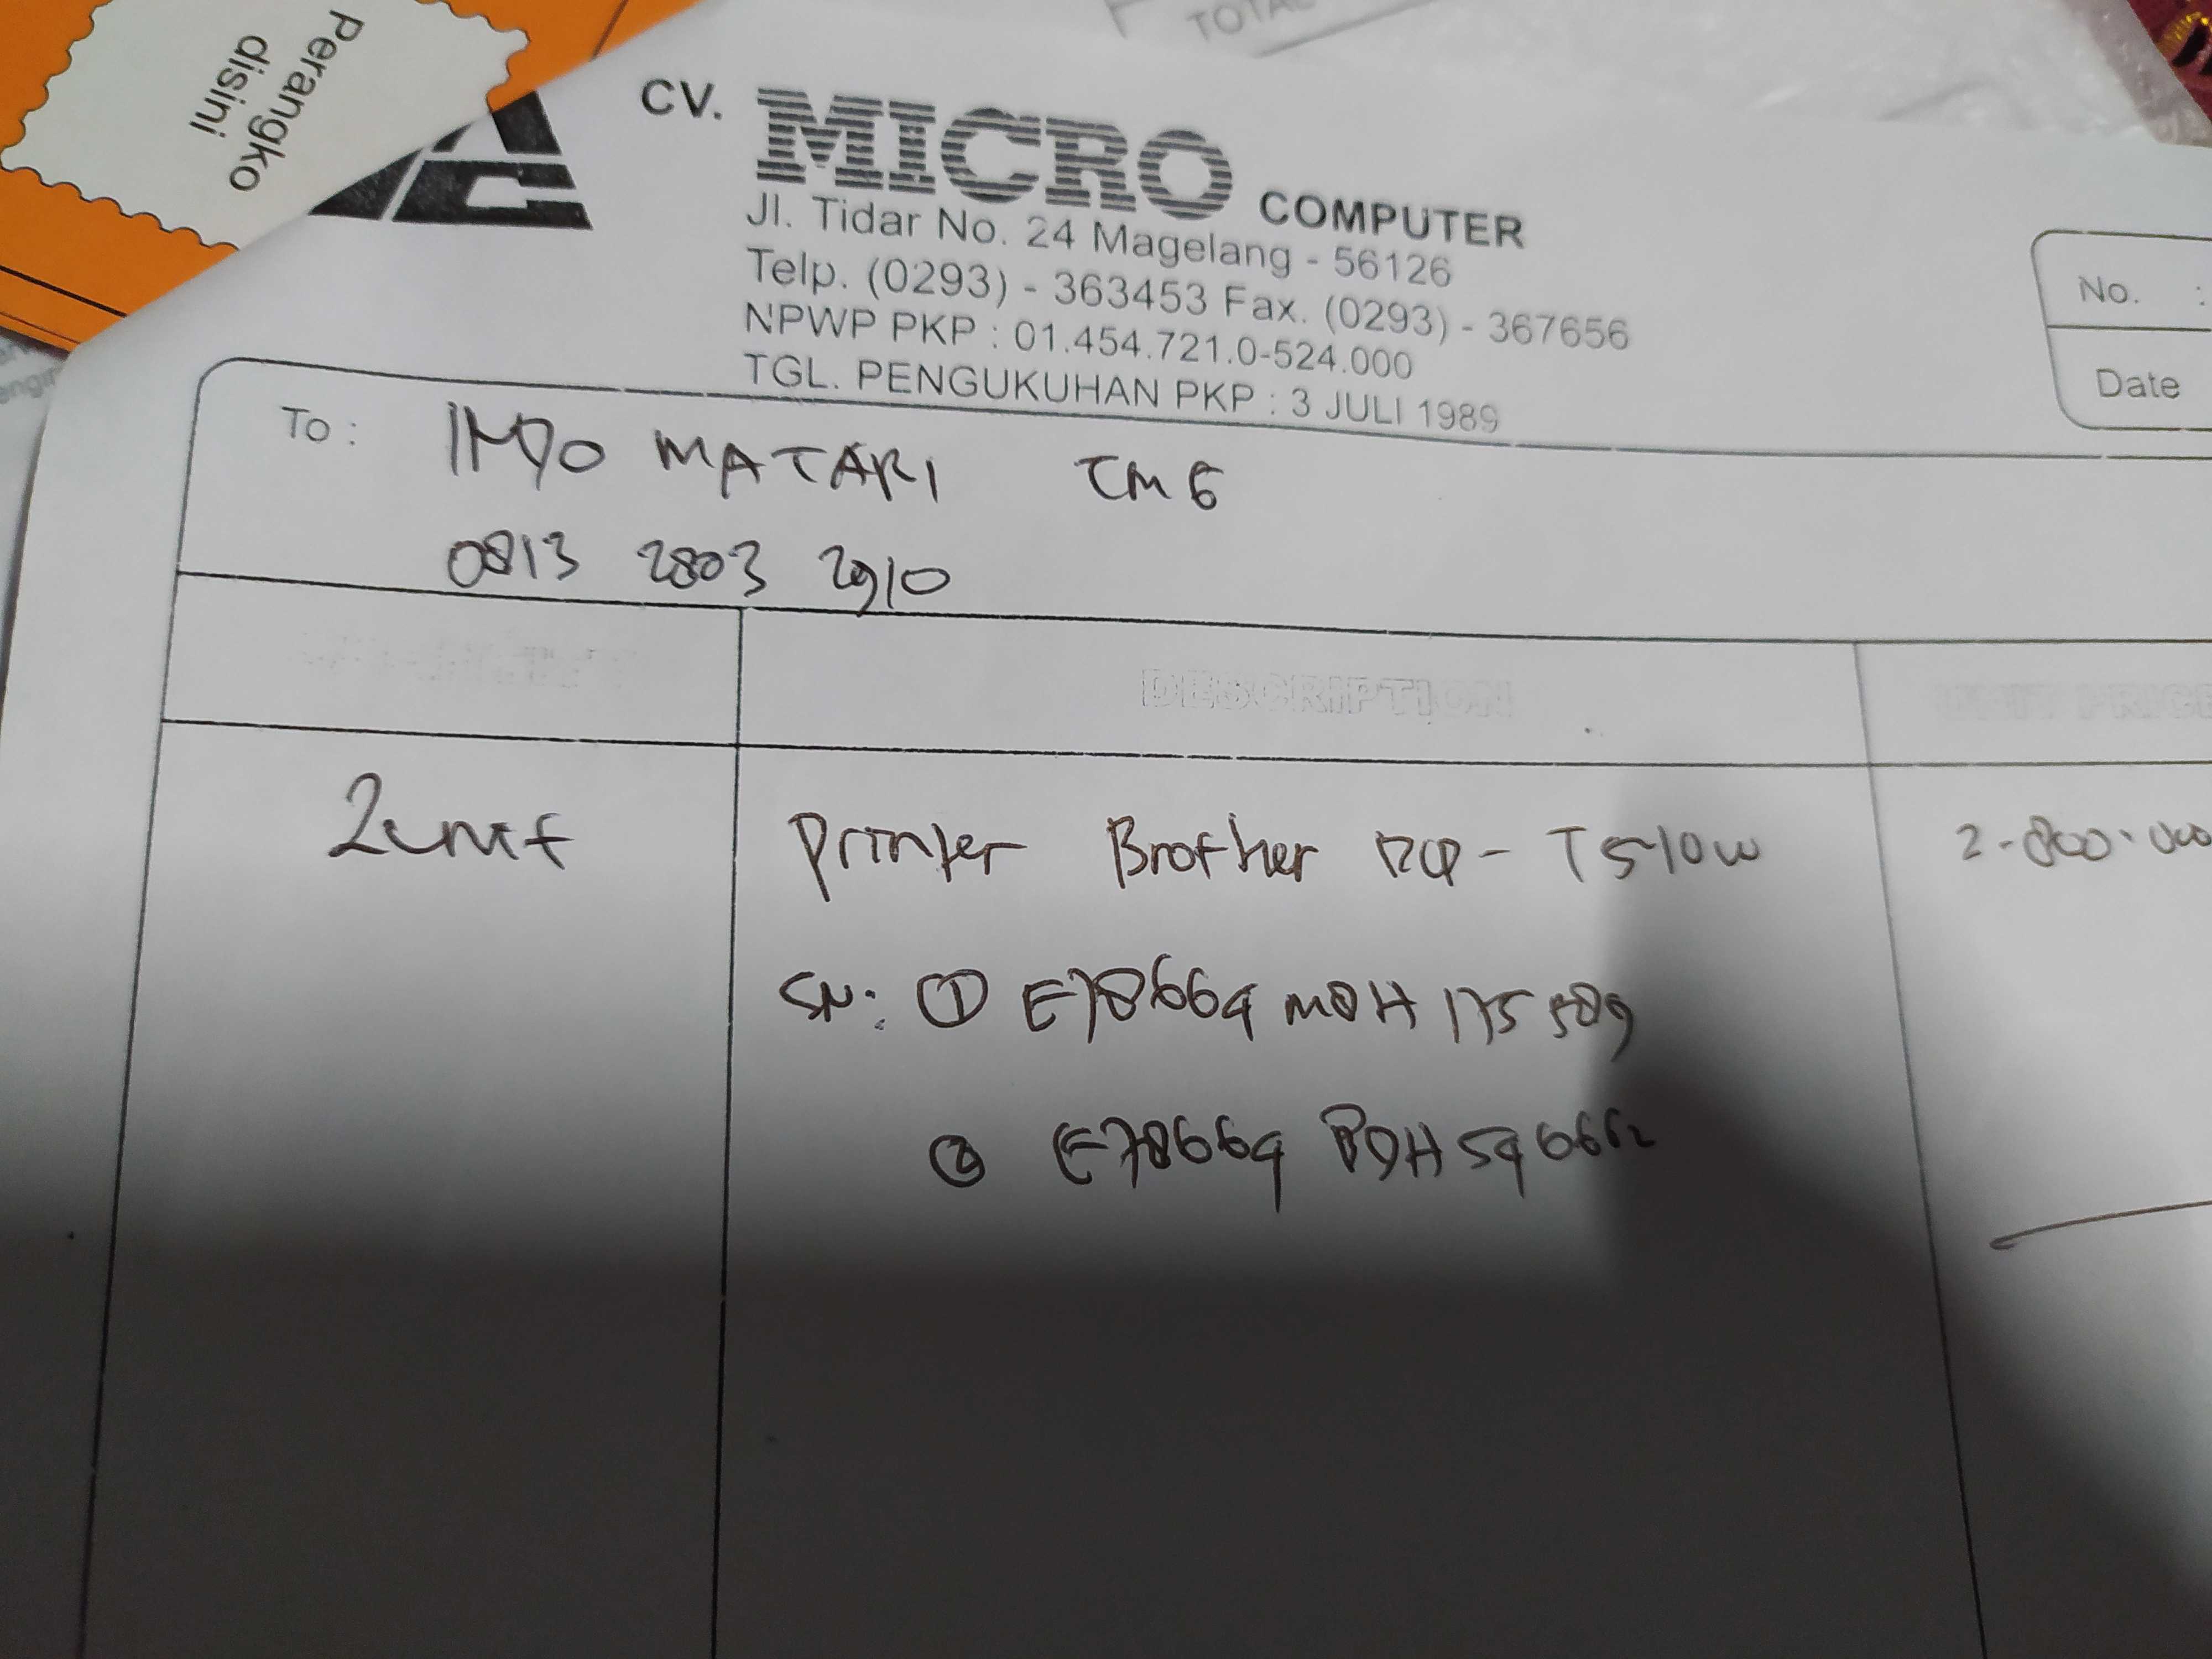 Perangko
disini
TOTAL
CV. MICRO COMPUTER
Jl. Tidar No. 24 Magelang - 56126
Telp. (0293) - 363453 Fax. (0293) - 367656
NPWP PKP : 01.454.721.0-524.000
TGL. PENGUKUHAN PKP : 3 JULI 1989
No. :
Date
To : INDO MATARI TM 6
0813 2803 2910
DESCRIPTION
UNIT PRICE
2 unit Printer Brother DCP - T510W 2.800.000
SN: ① E78664 M0H 175589
② E78664 B0H 596662